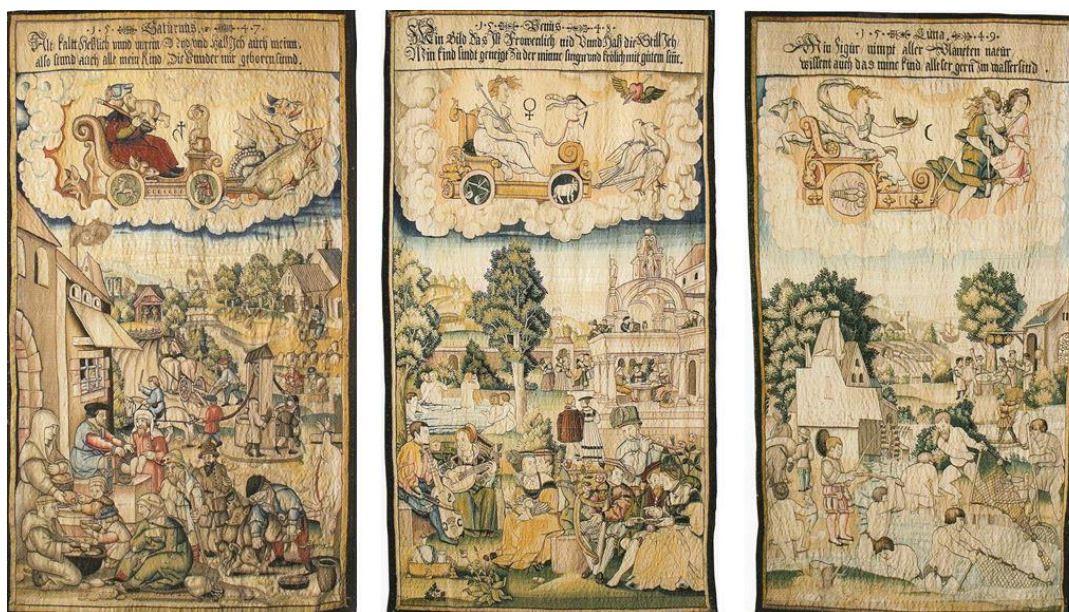 1 5 Saturnus 4 7
Alt kalt Heßlich vnnd vnrein Nyd vnd Haß Ich auch mein.
also sinnd auch alle mein Kind Die Vnnder mir geboren sinnd.
1 5 Venus 4
Min Bild das ist Frowenlich nid Vnnd Haß die Still Ich
Min kind sindt geneigt Zu der minne singen vnnd frölich mit guten sine.
1 5 Luna 4 9
Min Figur nimpt aller Planeten natur,
wissent auch das mine kind alle ser gern Im wasser sind.